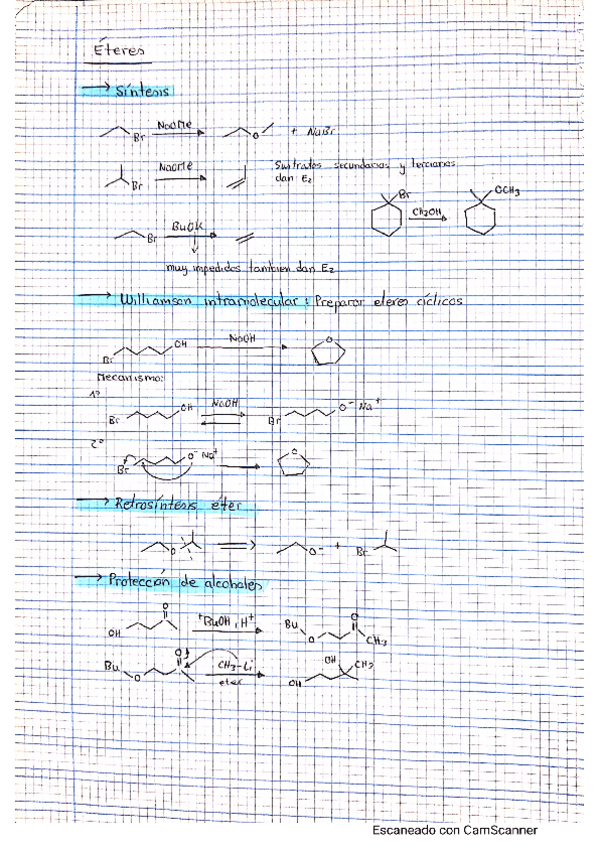 Éteres
→ Síntesis
Br NaOMe O + NaBr
Br NaOMe Sustratos secundarios y terciarios
dan E2
Br CH3OH OCH3
Br BuOK
muy impedidos tambien dan E2
→ Williamson intramolecular : Preparar eteres cíclicos
Br OH NaOH O
Mecanismo:
1º
Br OH NaOH Br O⁻ Na⁺
2º
Br O⁻ Na⁺ O
→ Retrosíntesis éter
O O⁻ + Br
→ Protección de alcoholes
OH O ⁺BuOH, H⁺ Bu O O CH3
Bu O O CH3-Li OH CH3
eter OH